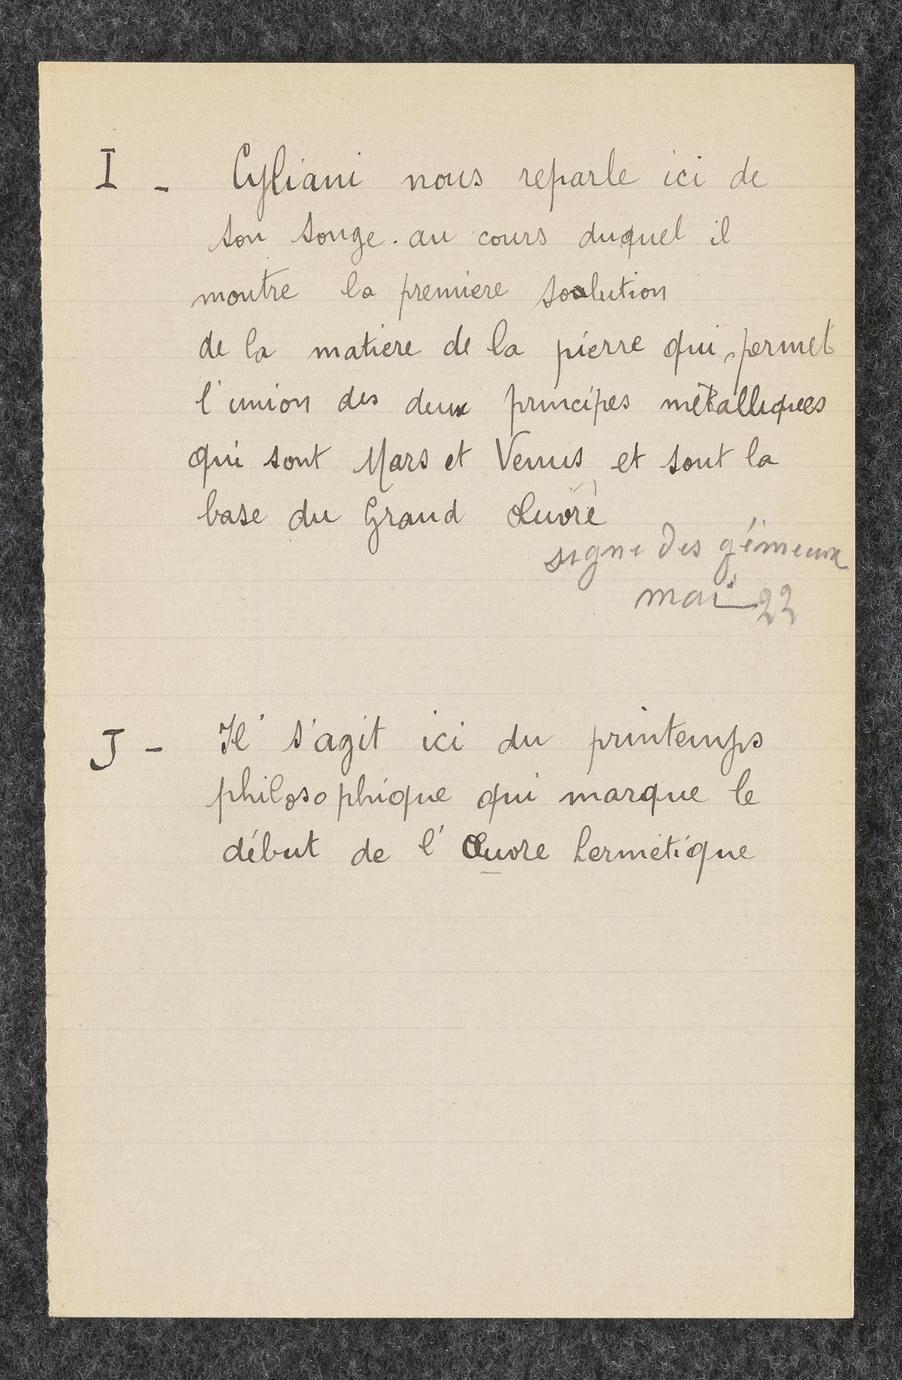 I - Cyliani nous reparle ici de
son songe. au cours duquel il
montre la premiere soalution
de la matiere de la pierre qui, permet
l'union des deux principes métalliques
qui sont Mars et Venus et sont la
base du Grand Œuvre
signe des gémeaux
mai 22
J - Il s'agit ici du printemps
philosophique qui marque le
début de l'Œuvre hermétique